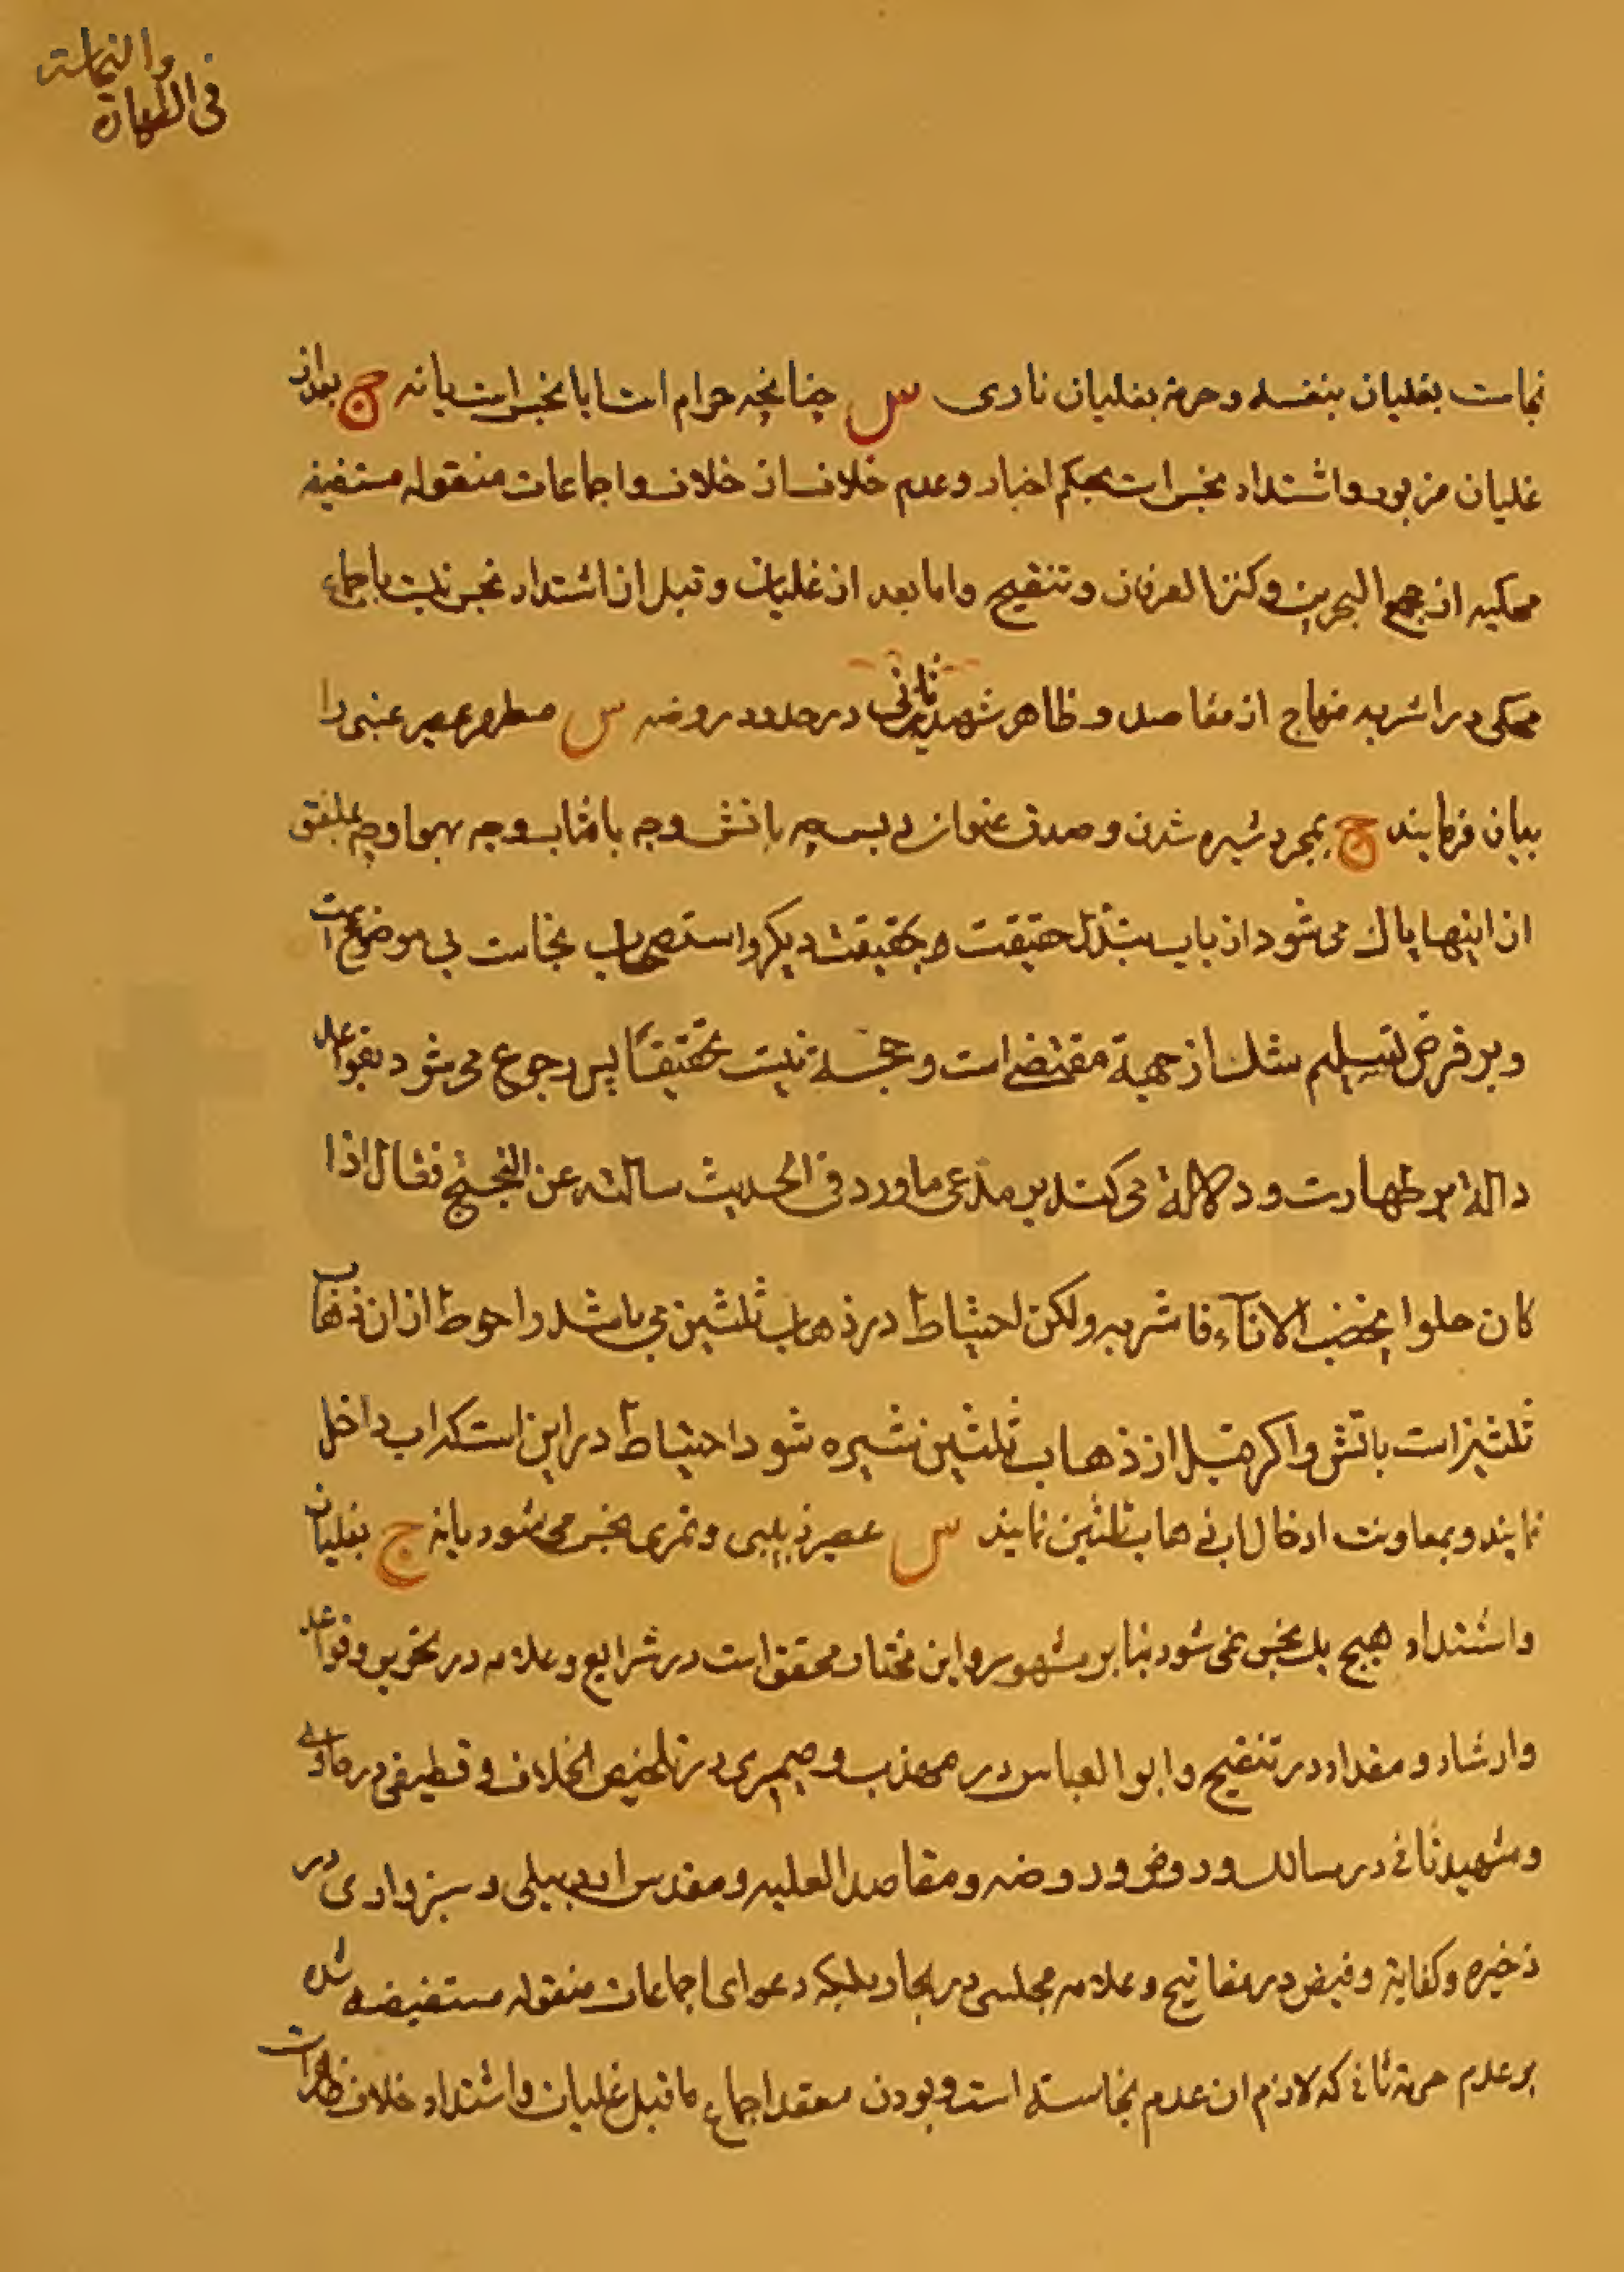 فی الطهارة
والنجاسة
نجاست بغلیان بنفسه وحرمة بغلیان ناری س چنانچه حرام است ایا نجس است یا نه ج بعد از
غلیان مزبور واشتداد نجس است بحکم اخبار وعدم خلاف از خلاف واجماعات منقوله مستفیضه
محکیه از مجمع البحرین وکنز العرفان وتنقیح واما بعد از غلیان وقبل از اشتداد نجس نیست باجماع
محکی در اشربه منهاج از مقاصد وظاهر شهیدثانی در حدود روضه س مطهر عصیر عنبی را
بیان فرمایند ج بمجرد شیره شدن وصدق عنوان دبس چه باتش وچه بافتاب وچه بهوا وچه بملفق
از اینها پاک می شود از باب تبدّل حقیقت بحقیقت دیگر واستصحاب نجاست بی موضوع است
وبر فرض تسلیم شک از جهة مقتضی است وحجة نیست تحقیقًا پس رجوع می شود بقواعد
دالة بر طهارت ودلالة می کند بر مدعی ما ورد فی الحدیث سالته عن البختج فقال اذا
کان حلوا یخضب الاناء فاشربه ولکن احتیاط در ذهاب ثلثین می باشد واحوط از ان ذهاب
ثلثین است باتش واگر قبل از ذهاب ثلثین شیره شود احتیاط در این است که اب داخل
نمایند وبمعاونت ادخال اب ذهاب ثلثین نمایند س عصیر زبیبی وتمری نجس می شود یا نه ج بغلیان
واشتداد هیچ یک نجس نمی شود بنا بر مشهور واین مختار محقق است در شرایع وعلامه در تحریر وقواعد
وارشاد ومقداد در تنقیح وابو العباس در مهذب وصیمری در تلخیص الخلاف وقطیفی در هادی
وشهیدثانی در مسالک وروض وروضه ومقاصد العلیه ومقدس اردبیلی وسبزواری در
ذخیره وکفایة وفیض در مفاتیح وعلامه مجلسی در بحار بلکه دعوای اجماعات منقوله مستفیضه شده
بر عدم حرمة ثانی که لازم ان عدم نجاسة است وبودن معقد اجماع ما قبل غلیان واشتداد خلاف ظاهر است